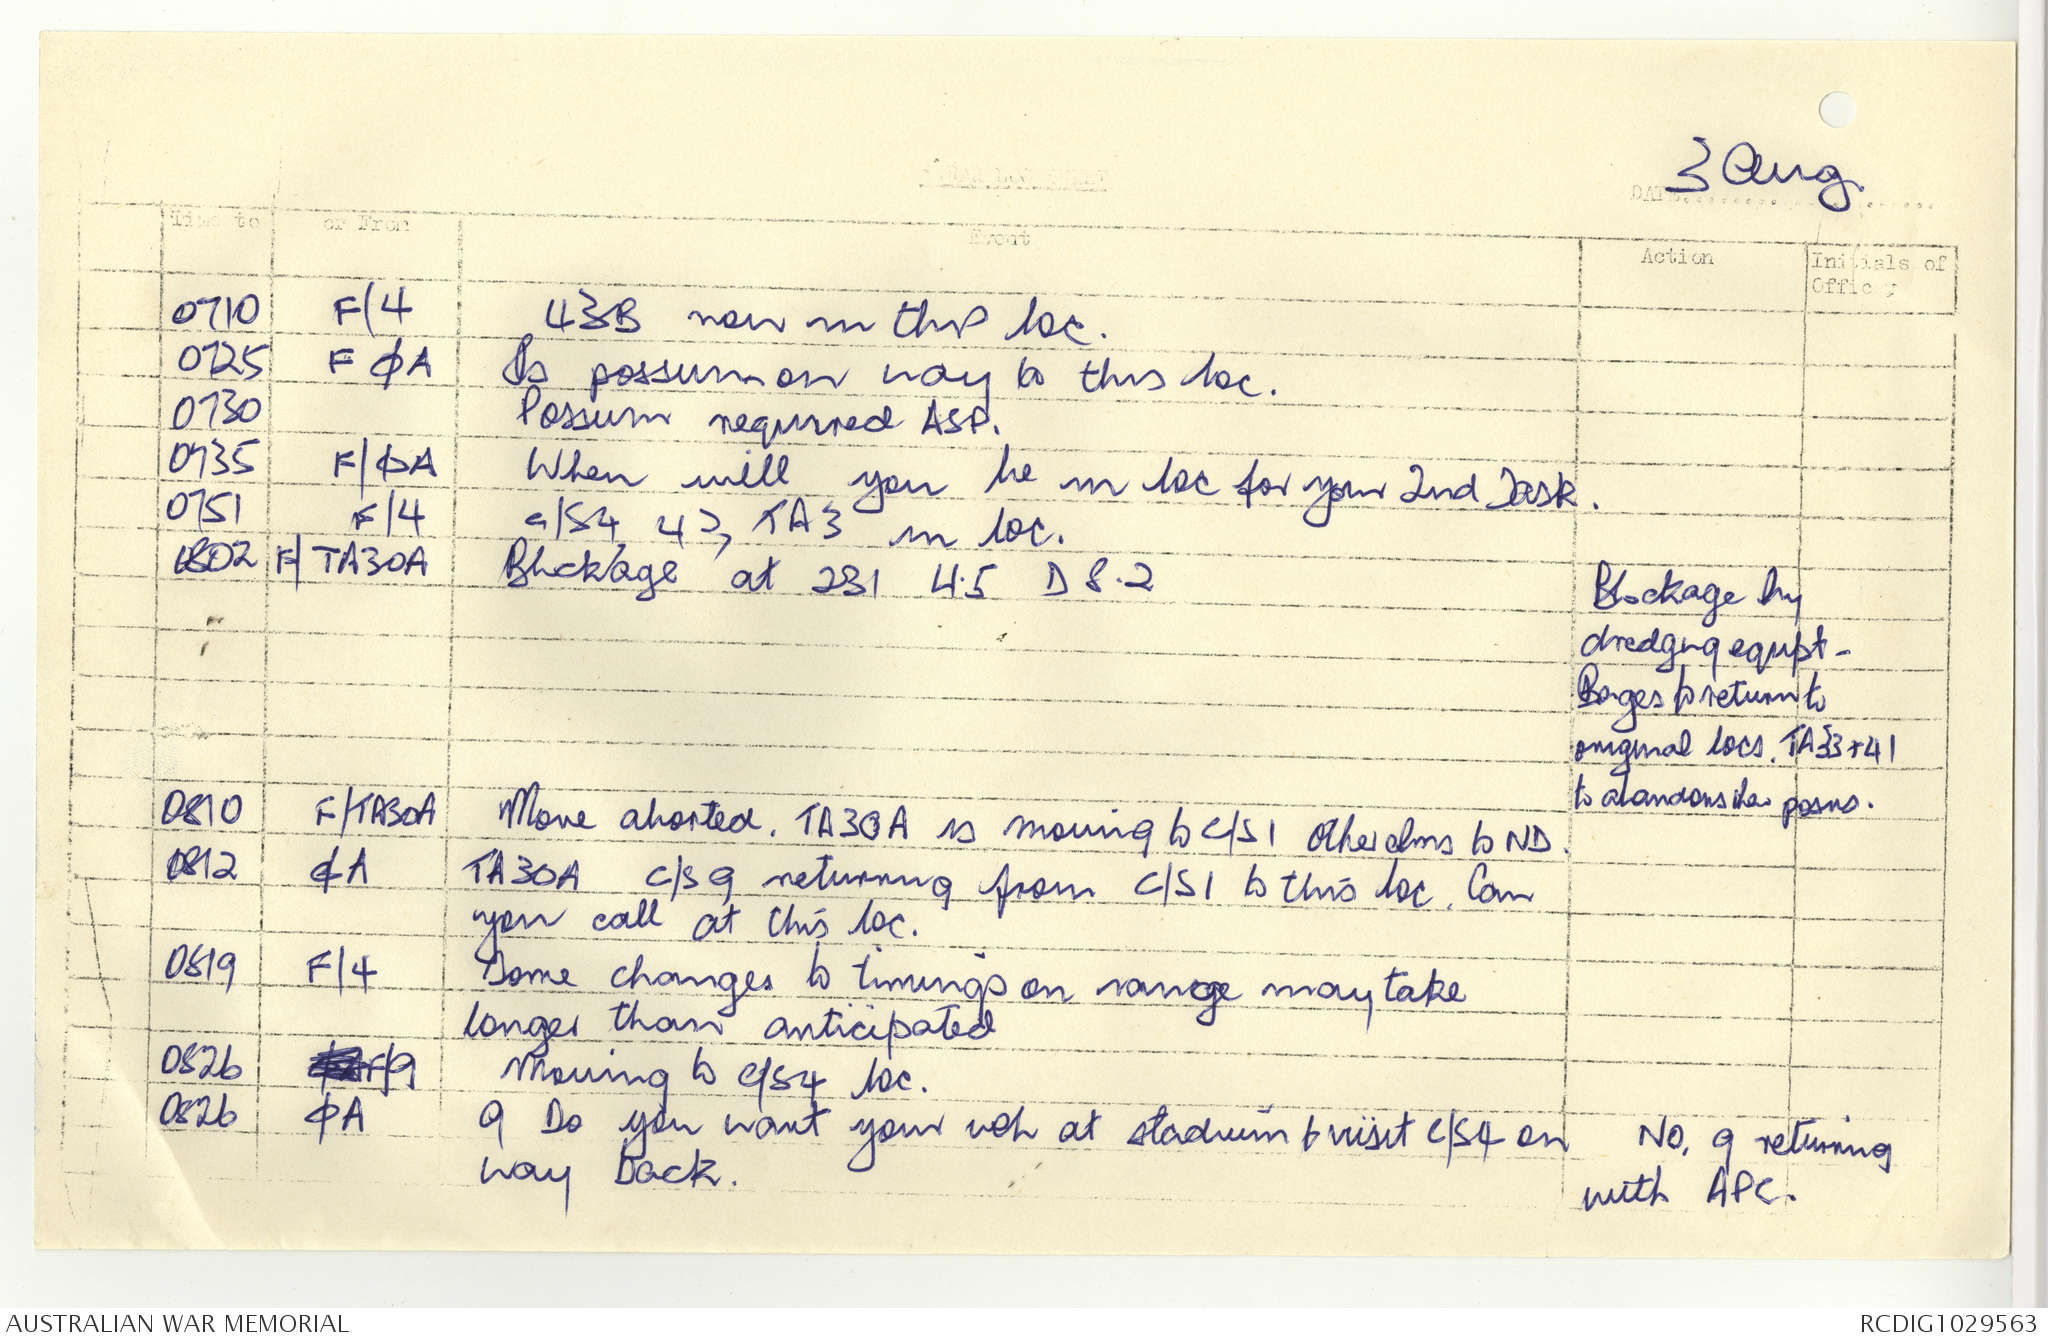 3 Aug.
DATE
Time to or From Event Action Initials of
Officer
0710 F/4 43B now in this loc.
0725 F ØA Is possum on way to this loc.
0730 Possum required ASP.
0735 F/ØA When will you be in loc for your 2nd Task.
0751 F/4 c/S4, 43, TA3 in loc.
0802 F/TA30A Blockage at 281 4.5 D 8.2
Blockage by
dredging equipt -
Barges to return to
original locs. TA33+41
to abandon their posns.
0810 F/TA30A Move aborted. TA30A is moving to C/S1 other elms to ND.
0812 ØA TA30A C/S 9 returning from C/S1 to this loc. Can
you call at this loc.
0819 F/4 Some changes to timings on range may take
longer than anticipated
0826 F/9 Moving to C/S4 loc.
0826 ØA 9 Do you want your veh at stadium to visit C/S4 on No, 9 returning
way back. with APC.
AUSTRALIAN WAR MEMORIAL RCDIG1029563